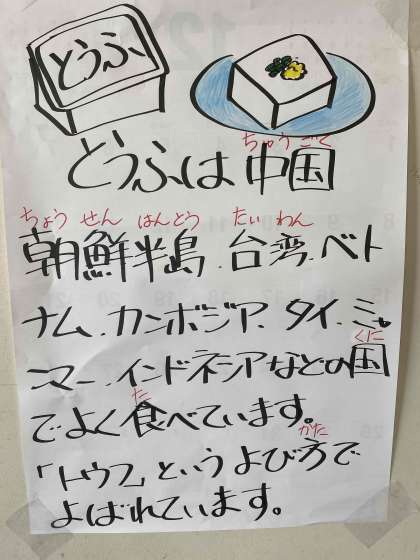 とうふ
ちゅうごく
とうふは中国
ちょう せん はんとう たい わん
朝鮮半島、台湾、ベト
ナム、カンボジア、タイ、ミャ
くに
ンマー、インドネシアなどの国
た
でよく食べています。
かた
「トウフ」というよび方で
よばれています。